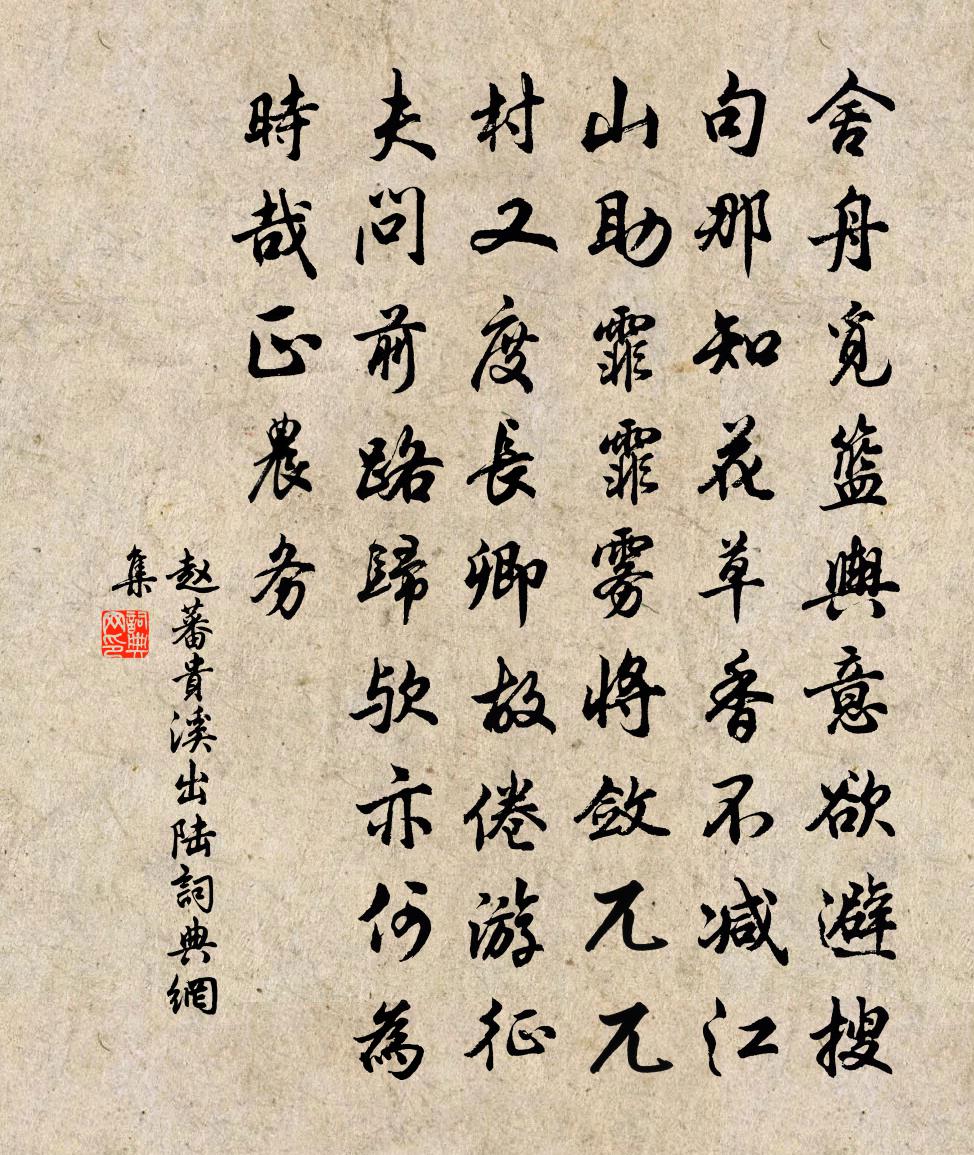 舍舟覓籃輿意欲避搜
句那知花草香不减江
山助霏霏雾將斂兀兀
村又度長卿故倦游征
夫問前路歸歟亦何為
時哉正農务
赵蕃貴溪出陆詞典網
集
詞典網印